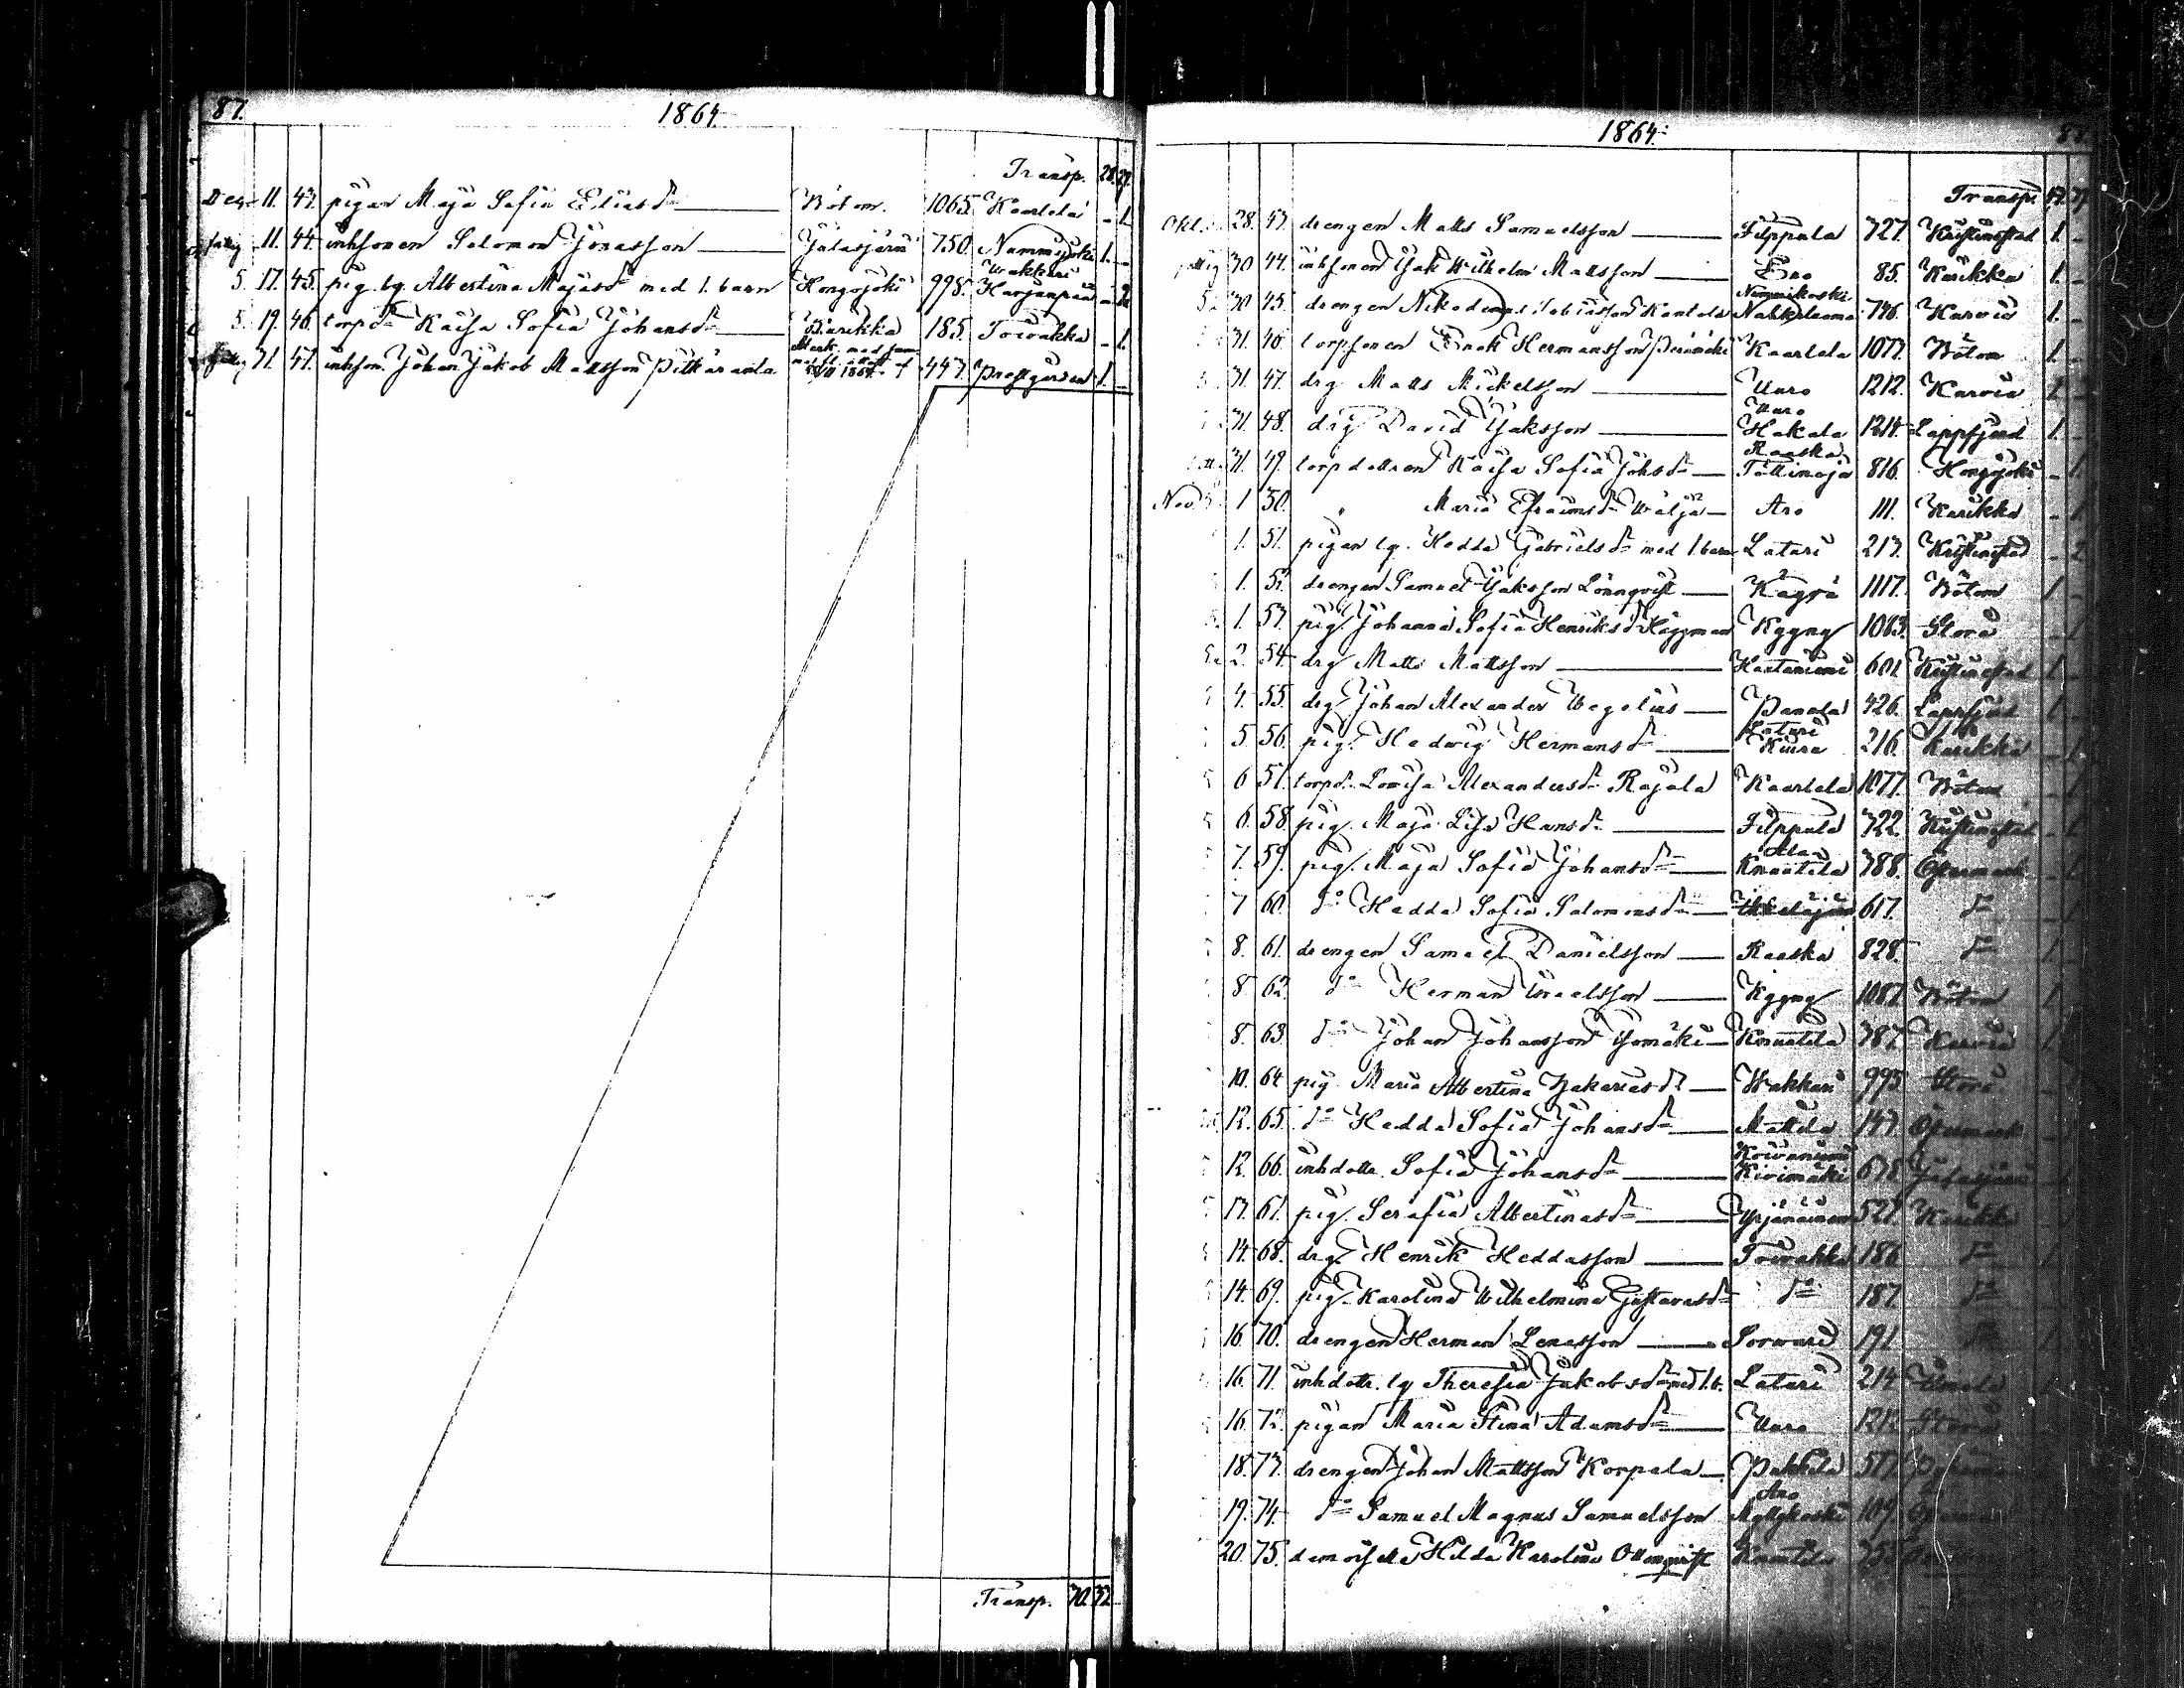 87.
1864.
Transp. 28. 27.
Dec. 11. 43. pigan Maja Sofia Eliasd:r Bötom. 1065. Kaarlela - 1.
11. 44. inhsonen Salomon Jonasson Jalasjärvi 750. Nummijoki 1. -
S. 17. 45. pig. lg. Albertina Majasd:r med 1. barn Hongojoki 998. Wakkuri Harjanpää - 2.
S. 19. 46. torpd:r Kaisa Sofia Johansd:r Karikka 185. Toivakka - 1.
31. 47. inhson. Johan Jakob Mattsson Pitkäranta 447. Prestgården 1. -
Transp. 30. 32.
1864.
88.
Transp.
Okt. 28. 43. drengen Matts Samuelsson Filppula 727. Kristinestad 1. -
30 44. inhsonen Isak Wilhelm Mattsson Eno 85. Karikka 1. -
30 45. drengen Nikodemus Tobiasson Kantola 746. Karvia 1. -
31. 46. torpsonen Enok Hermansson Perämäki Kaarlela 1077. Bötom 1.
31. 47. drg. Matts Mickelsson Uuro 1212. Karvia 1.
31. 48. drg David Isaksson Uuro Hakala 1214. Lappfjerd 1. -
31. 49. torpdottren Kaisa Sofia Johsd:r Raaska 816. Hongojoki - 1.
Nov. 1 50. " Maria Efraimsd:r Wälja Aro 111. Karikka - 1
1. 51. pigan lg. Hedda Gabrielsd:r med 1 barn Latari 213. Kristinestad - 2
1. 52. drengen Samuel Isaksson Lönnqvist Kägrä 1117. Bötom 1 -
1. 53. pig. Johanna Sofia Henriksd:r Häggman Kyyny 1083. Storå - 1
2. 54. drg Matts Mattsson Hautaniemi 601 Kristinestad 1 -
4. 55. drg. Johan Alexander Wegelius Panula 426. Lappfjerd 1 -
5. 56. pig. Hedwig Hermansd:r Latari Kiura 216. Karikka - 1
6 57. torpd:r Lovisa Alexandersd:r Rajala Kaarlela 1077. Bötom - 1
6. 58. pig. Maja Lisa Hansd:r Filppula 722. Kristinestad - 1
7. 59. pig. Maja Sofia Johansd:r Ala Knuutila 788. Östermark - 1
7 60. d:o Hedda Sofia Salomonsd:r 617. d:o
8. 61. drengen Samuel Danielsson Raaska 828. d:o
8 62. d:o Herman Israelsson Kyyny 1087. Bötom
8. 63. d:o Johan Johansson Isomäki Knuutila 787. Karvia
10. 64. pig Maria Albertina Zakariasd:r Wakkuri 995 Storå
12. 65. d:o Hedda Sofia Johansd:r Mattila 147. Östermark
12. 66. inhdottr. Sofia Johansd:r Koivuniemi Kivimäki 678 Jalasjärvi
13. 67. pig. Serafia Albertinasd:r Yrjänäinen 527. Karikka
14. 68. drg. Henrik Heddasson Toivakka 186 d:o
14. 69. pig. Karolina Wilhelmina Gustavasd:r d:o 187. d:o
16. 70. drengen Herman Lenasson Sorvari 191.
16. 71. inhdottr. lg Theresia Jakobsd:r med 1. b. Latari 214
16. 72. pigan Maria Stina Adamsd:r Uuro 1212 Storå
18. 73. drengen Johan Mattsson Korpela Pukkila 517.
19. 74. d:o Samuel Magnus Samuelsson Aro Myllykoski 109.
20. 75. demoiselle Hilda Karolina Ottonqvist Knuutila